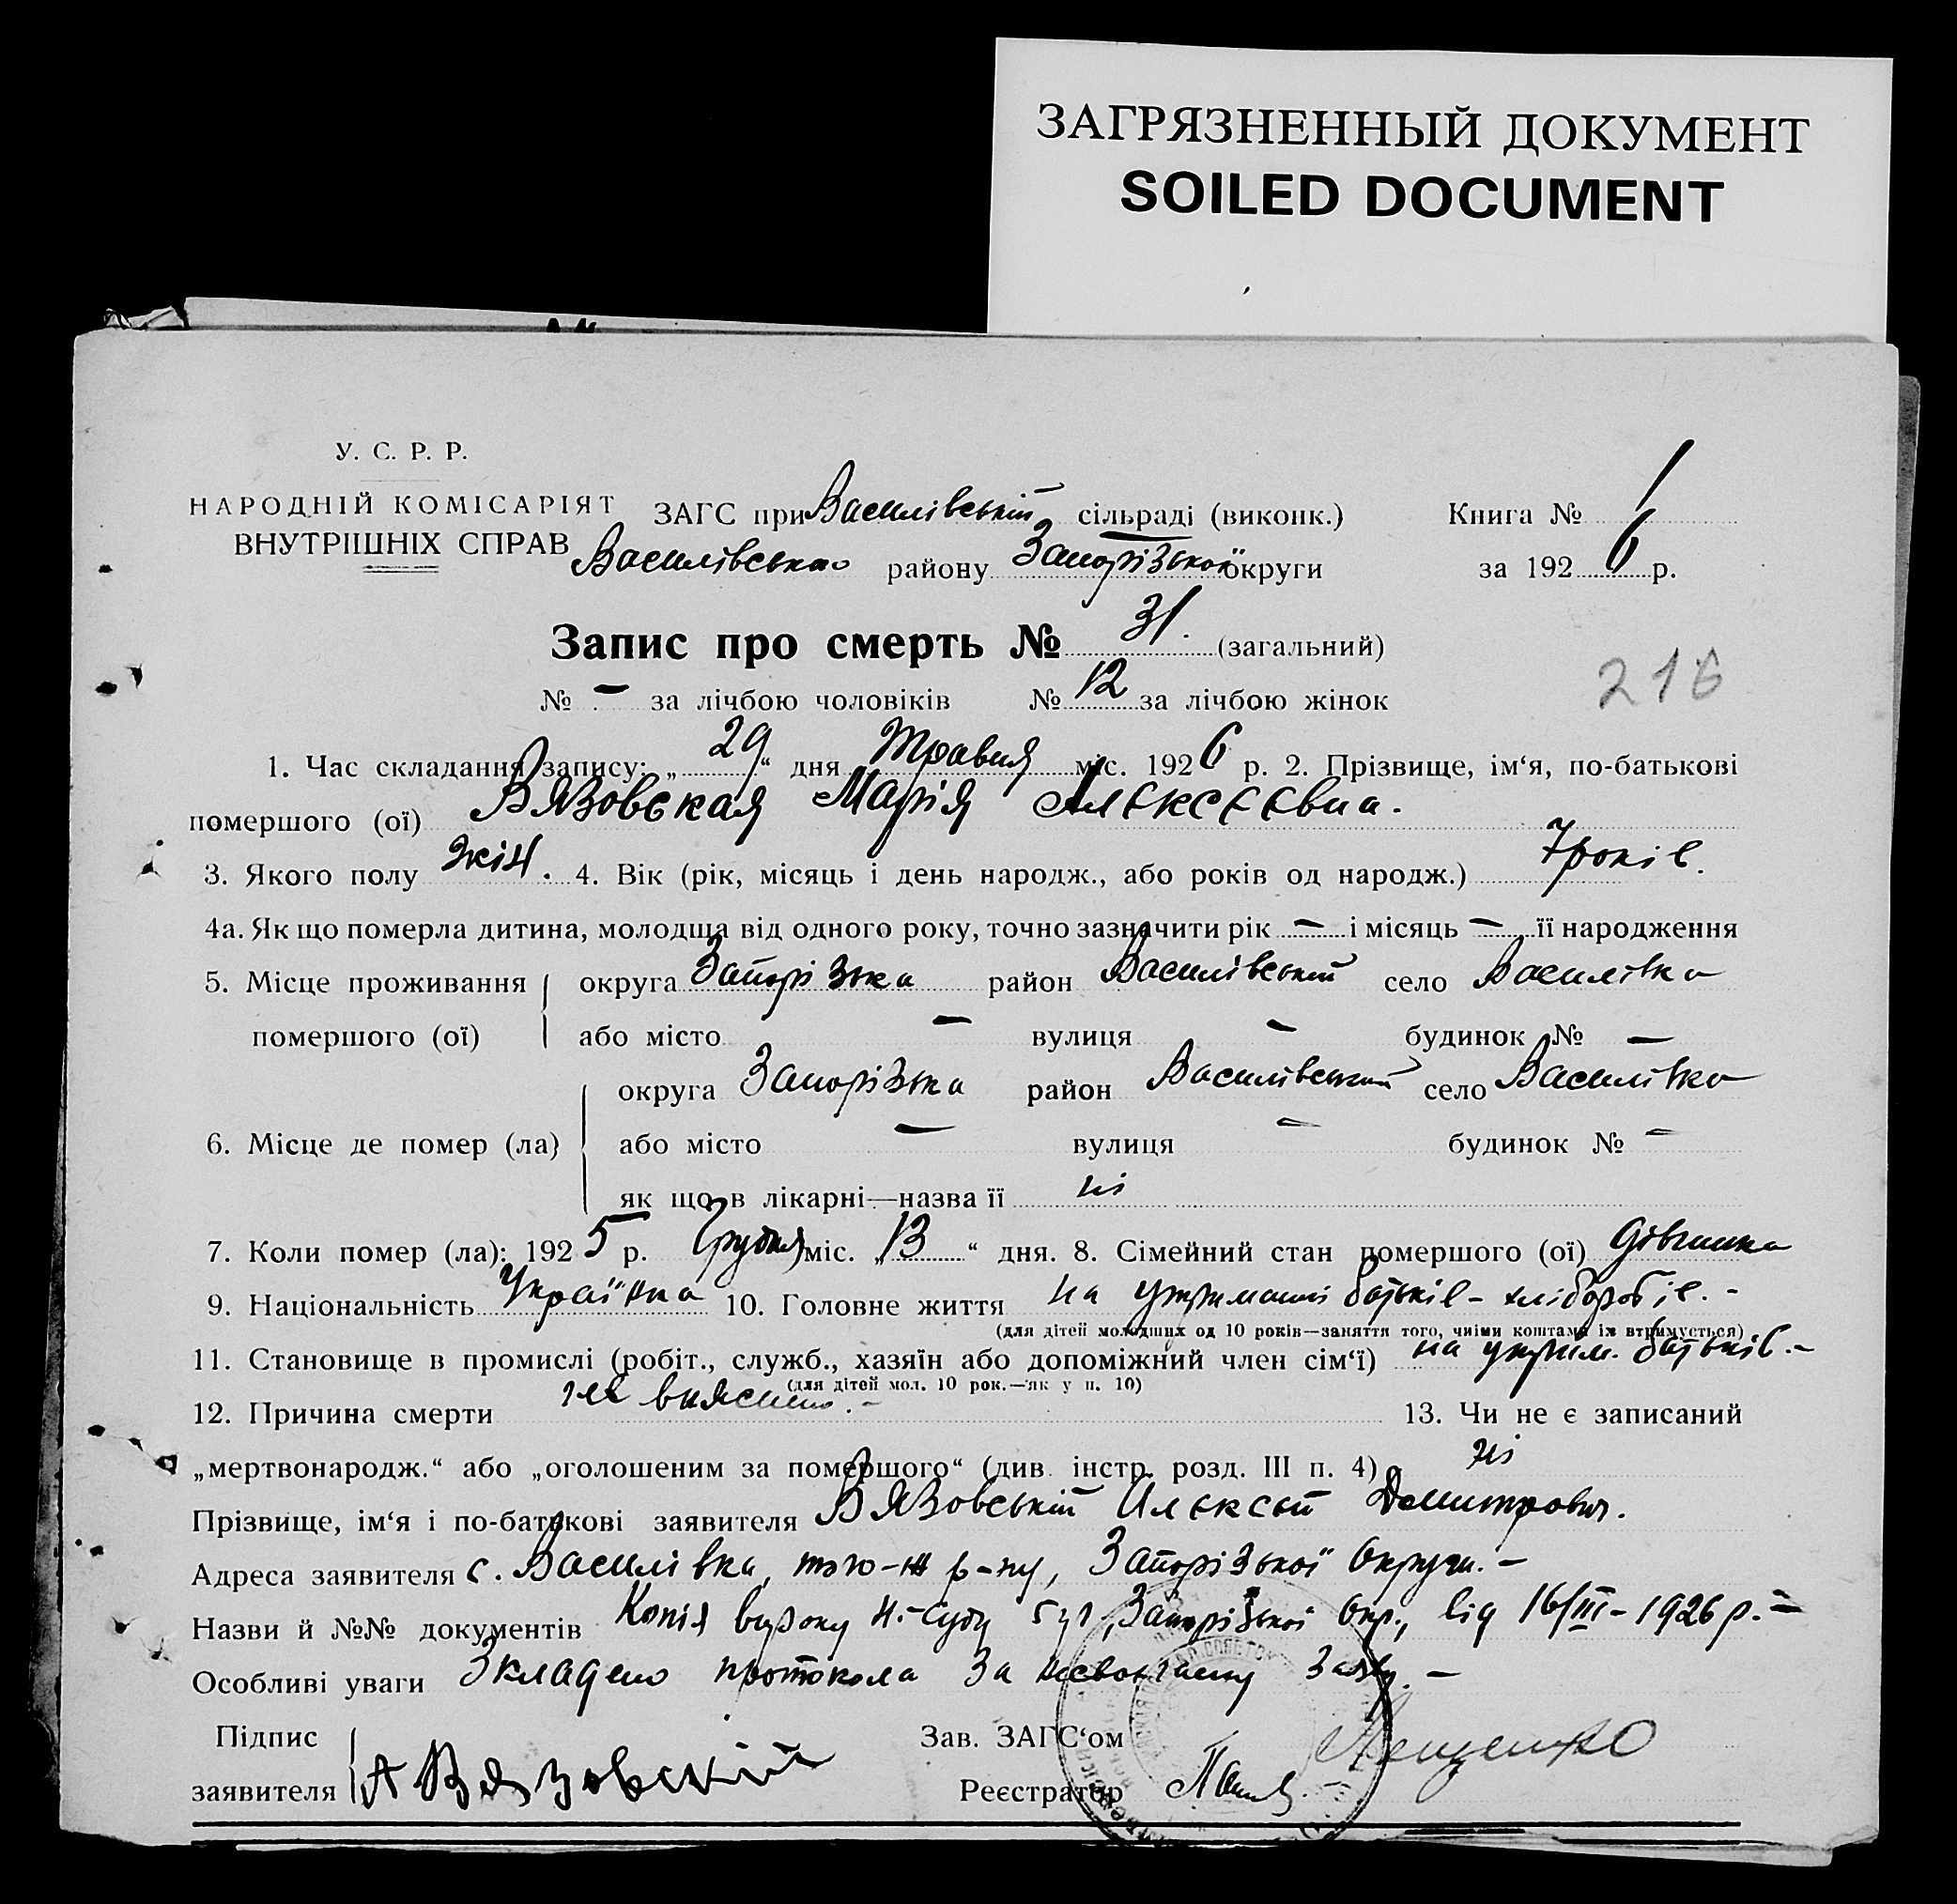 ЗАГРЯЗНЕННЫЙ ДОКУМЕНТ
SOILED DOCUMENT
У. С. Р. Р.
НАРОДНІЙ КОМІСАРІЯТ
ВНУТРІШНІХ СПРАВ
ЗАГС при Василівській сільраді (виконк.) Книга № 1
Василівсько району Запорізької округи за 1926 р.
Запис про смерть № 31. (загальний)
216
№ - за лічбою чоловіків № 12 за лічбою жінок
1. Час складання запису: „29“ дня Травня міс. 1926 р. 2. Прізвище, ім‘я, по-батькові
помершого (ої) Вязовская Марія Алексеевна.
3. Якого полу жін. 4. Вік (рік, місяць і день народж., або років од народж.) 7 років.
4а. Як що померла дитина, молодша від одного року, точно зазначити рік - і місяць - її народження
5. Місце проживання округа Запорізька район Василівський село Василівка
помершого (ої) або місто - вулиця - будинок № -
округа Запорізька район Василівський село Василівка
6. Місце де помер (ла) або місто - вулиця - будинок № -
як що в лікарні—назва її ні
7. Коли помер (ла): 1925 р. Грудня міс. „13“ дня. 8. Сімейний стан помершого (ої) дівчинка
9. Національність Українка 10. Головне життя на утриманні батьків - хліборобів. -
(для дітей молодших од 10 років—заняття того, чиїми коштами їх втримується)
11. Становище в промислі (робіт., служб., хазяїн або допоміжний член сім‘ї) на утрим. батьків. -
(для дітей мол. 10 рок.—як у п. 10)
12. Причина смерти не вияснено. - 13. Чи не є записаний
„мертвонародж.“ або „оголошеним за помершого“ (див. інстр. розд. III п. 4) ні
Прізвище, ім‘я і по-батькові заявителя Вязовській Алексей Демитрович.
Адреса заявителя с. Василівка, того-ж р-ну, Запорізької Округи. -
Назви й №№ документів Копія вироку Н.-Суду 5 уч, Запорізької Окр., від 16/III-1926 р. -
Особливі уваги Складено протокола за несвоєчасну заяву. -
Підпис Зав. ЗАГС‘ом
заявителя А Вязовский Реєстратор